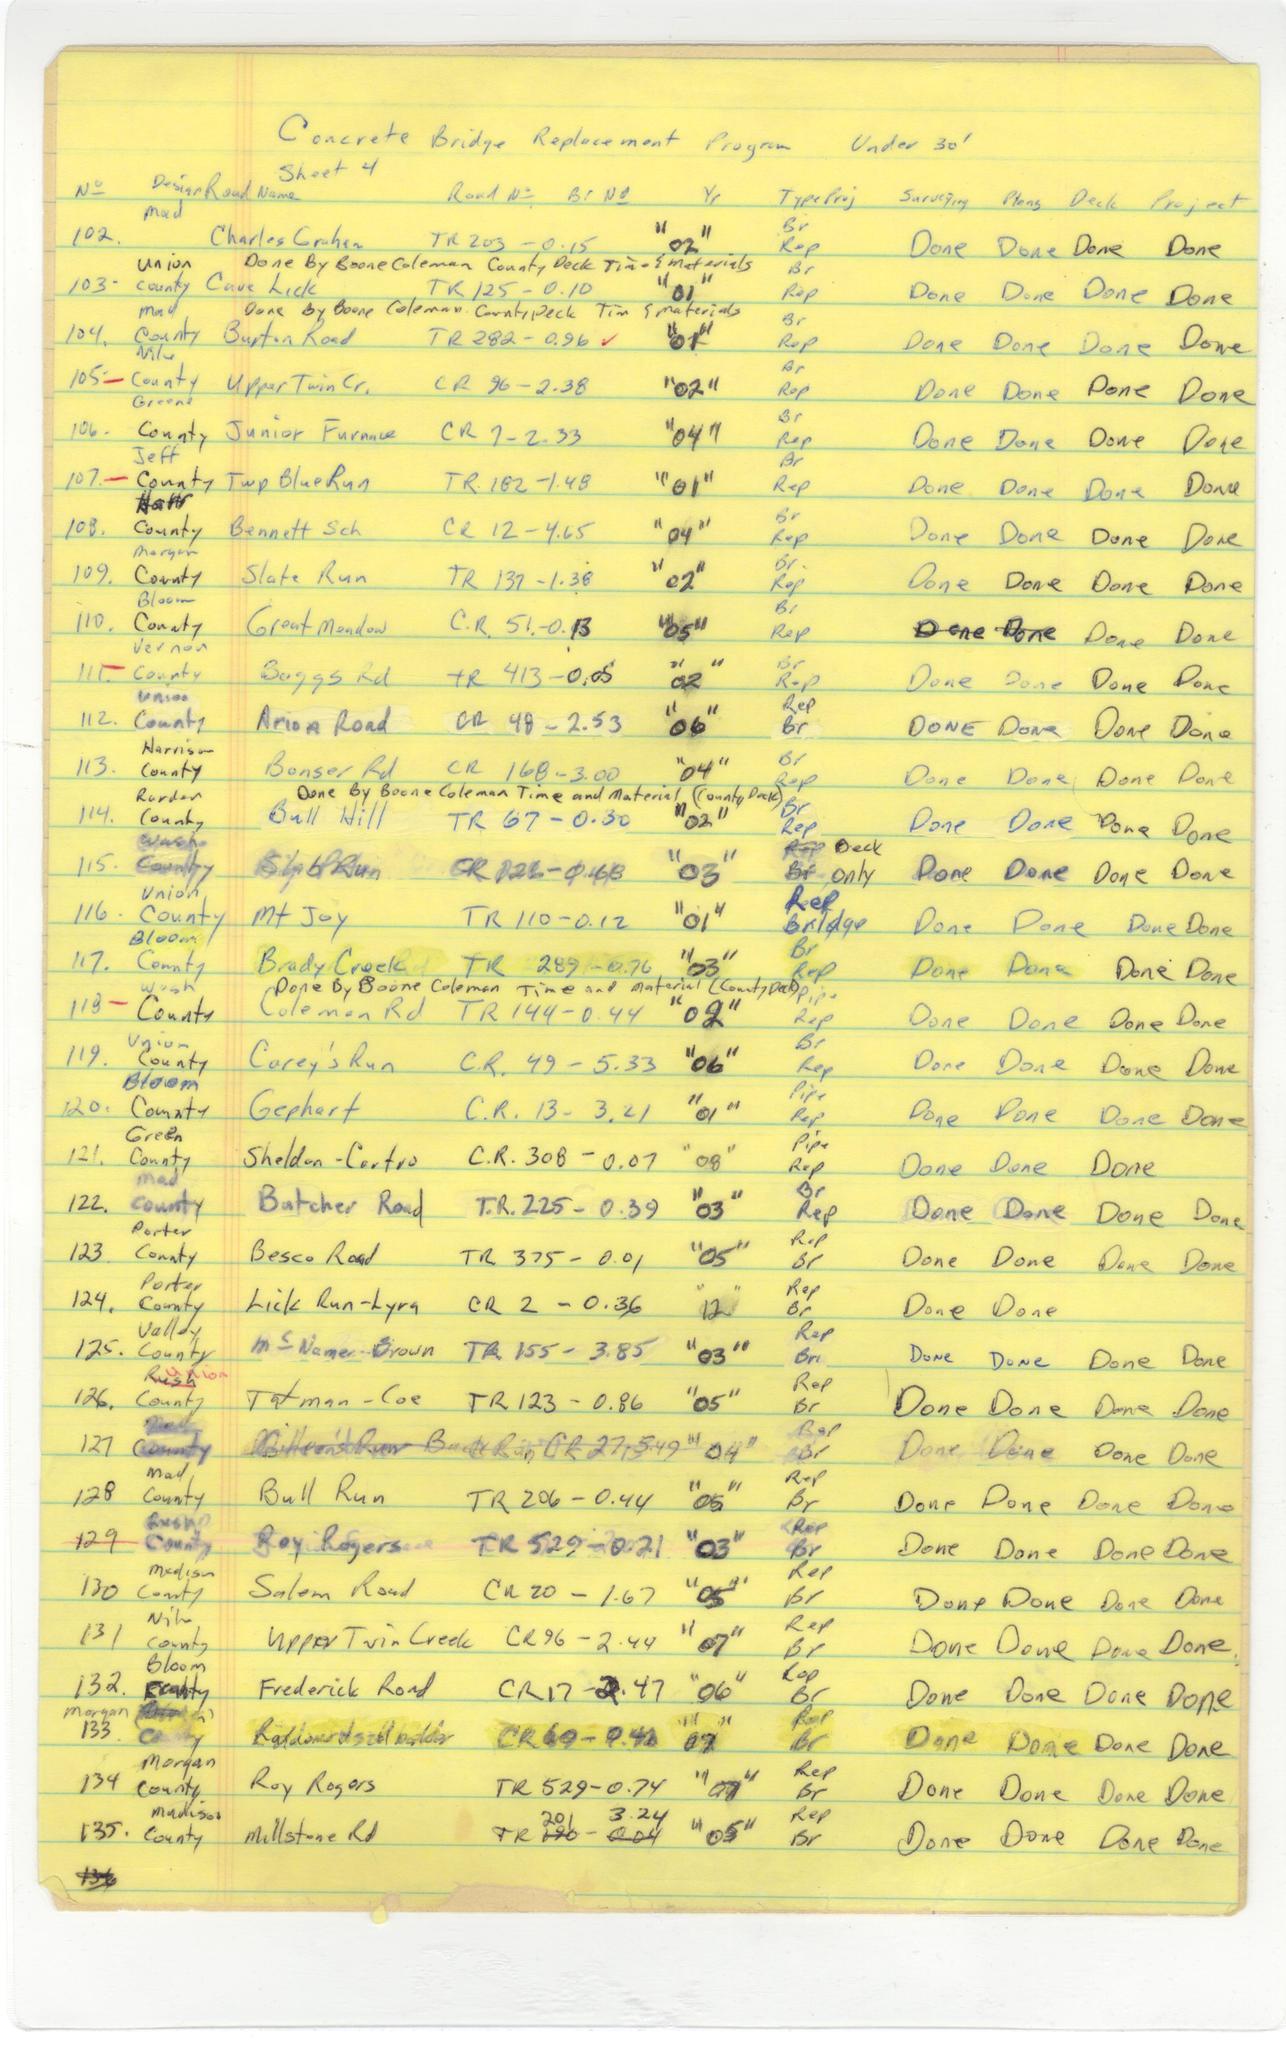 Concrete Bridge Replacement Program Under 30'
Sheet 4
No Design Road Name Road No Br No Yr Type Proj Surveying Plans Deck Project
Mad Br
102. Charles Graham TR 203 - 0.15 "02" Rep Done Done Done Done
Union Done By Boone Coleman County Deck Time & Materials Br
103- County Cave Lick TR 125 - 0.10 "01" Rep Done Done Done Done
Mad Done By Boone Coleman County Deck Tim & materials Br
104. County Burton Road TR 282 - 0.96 ✓ "01" Rep Done Done Done Done
Nile Br
105- County Upper Twin Cr. CR 96 - 2.38 "02" Rep Done Done Done Done
Greene Br
106. County Junior Furnace CR 7 - 2.33 "04" Rep Done Done Done Done
Jeff Br
107. County Twp Blue Run TR. 182 - 1.48 "01" Rep Done Done Done Done
Harr Br
108. County Bennett Sch CR 12 - 4.65 "04" Rep Done Done Done Done
Morgan Br.
109. County Slate Run TR 137 - 1.38 "02" Rep Done Done Done Done
Bloom Br
110. County Great Meadow C.R. 51 - 0.13 "05" Rep Done Done Done Done
Vernon Br
111- County Boggs Rd TR 413 - 0.05 "02" Rep Done Done Done Done
Union Rep
112. County Arion Road CR 48 - 2.53 "06" Br DONE Done Done Done
Harrison Br
113. County Bonser Rd CR 168 - 3.00 "04" Rep Done Done Done Done
Rarden Done By Boone Coleman Time and Material (County Deck) Br
114. County Bull Hill TR 67 - 0.30 "02" Rep Done Done Done Done
Wash Rep Deck
115. County Run CR "03" Br only Done Done Done Done
Union Rep
116. County Mt Joy TR 110 - 0.12 "01" Bridge Done Done Done Done
Bloom Br
117. County Brady Creek TR 289 - 0.76 "03" Rep Done Done Done Done
Wash Done By Boone Coleman Time and Material (County Deck) Pipe
118 - County Coleman Rd TR 144 - 0.44 "02" Rep Done Done Done Done
Union Br
119. County Carey's Run C.R. 49 - 5.33 "06" Rep Done Done Done Done
Bloom Pipe
120. County Gephart C.R. 13 - 3.21 "01" Rep Done Done Done Done
Green Pipe
121. County Sheldon - Contro C.R. 308 - 0.07 "08" Rep Done Done Done
Mad Br
122. County Butcher Road T.R. 225 - 0.39 "03" Rep Done Done Done Done
Porter Rep
123 County Besco Road TR 375 - 0.01 "05" Br Done Done Done Done
Porter Rep
124. County Lick Run - Lyra CR 2 - 0.36 "12" Br Done Done
Valley Rep
125. County McNamer - Brown TR 155 - 3.85 "03" Br. DONE DONE Done Done
Rush Union Rep
126. County Tatman - Coe TR 123 - 0.86 "05" Br Done Done Done Done
127 County Run CR 27-5.49 "04" Br Done Done Done Done
Mad Rep
128 County Bull Run TR 206 - 0.44 "05" Br Done Done Done Done
Rush Rep
129 County Roy Rogers TR 529 - 0.21 "03" Br Done Done Done Done
Madison Rep
130 County Salem Road CR 20 - 1.67 "05" Br Done Done Done Done
Nile Rep
131 County Upper Twin Creek CR 96 - 2.44 "07" Br Done Done Done Done.
Bloom Rep
132. County Frederick Road CR 17 - 2.47 "06" Br Done Done Done Done
Morgan Rep
133 County CR Br Done Done Done Done
Morgan Rep
134 County Roy Rogers TR 529 - 0.74 Br Done Done Done Done
Madison 201 3.24 Rep
135. County Millstone Rd TR 190 - 0.04 "05" Br Done Done Done Done
136